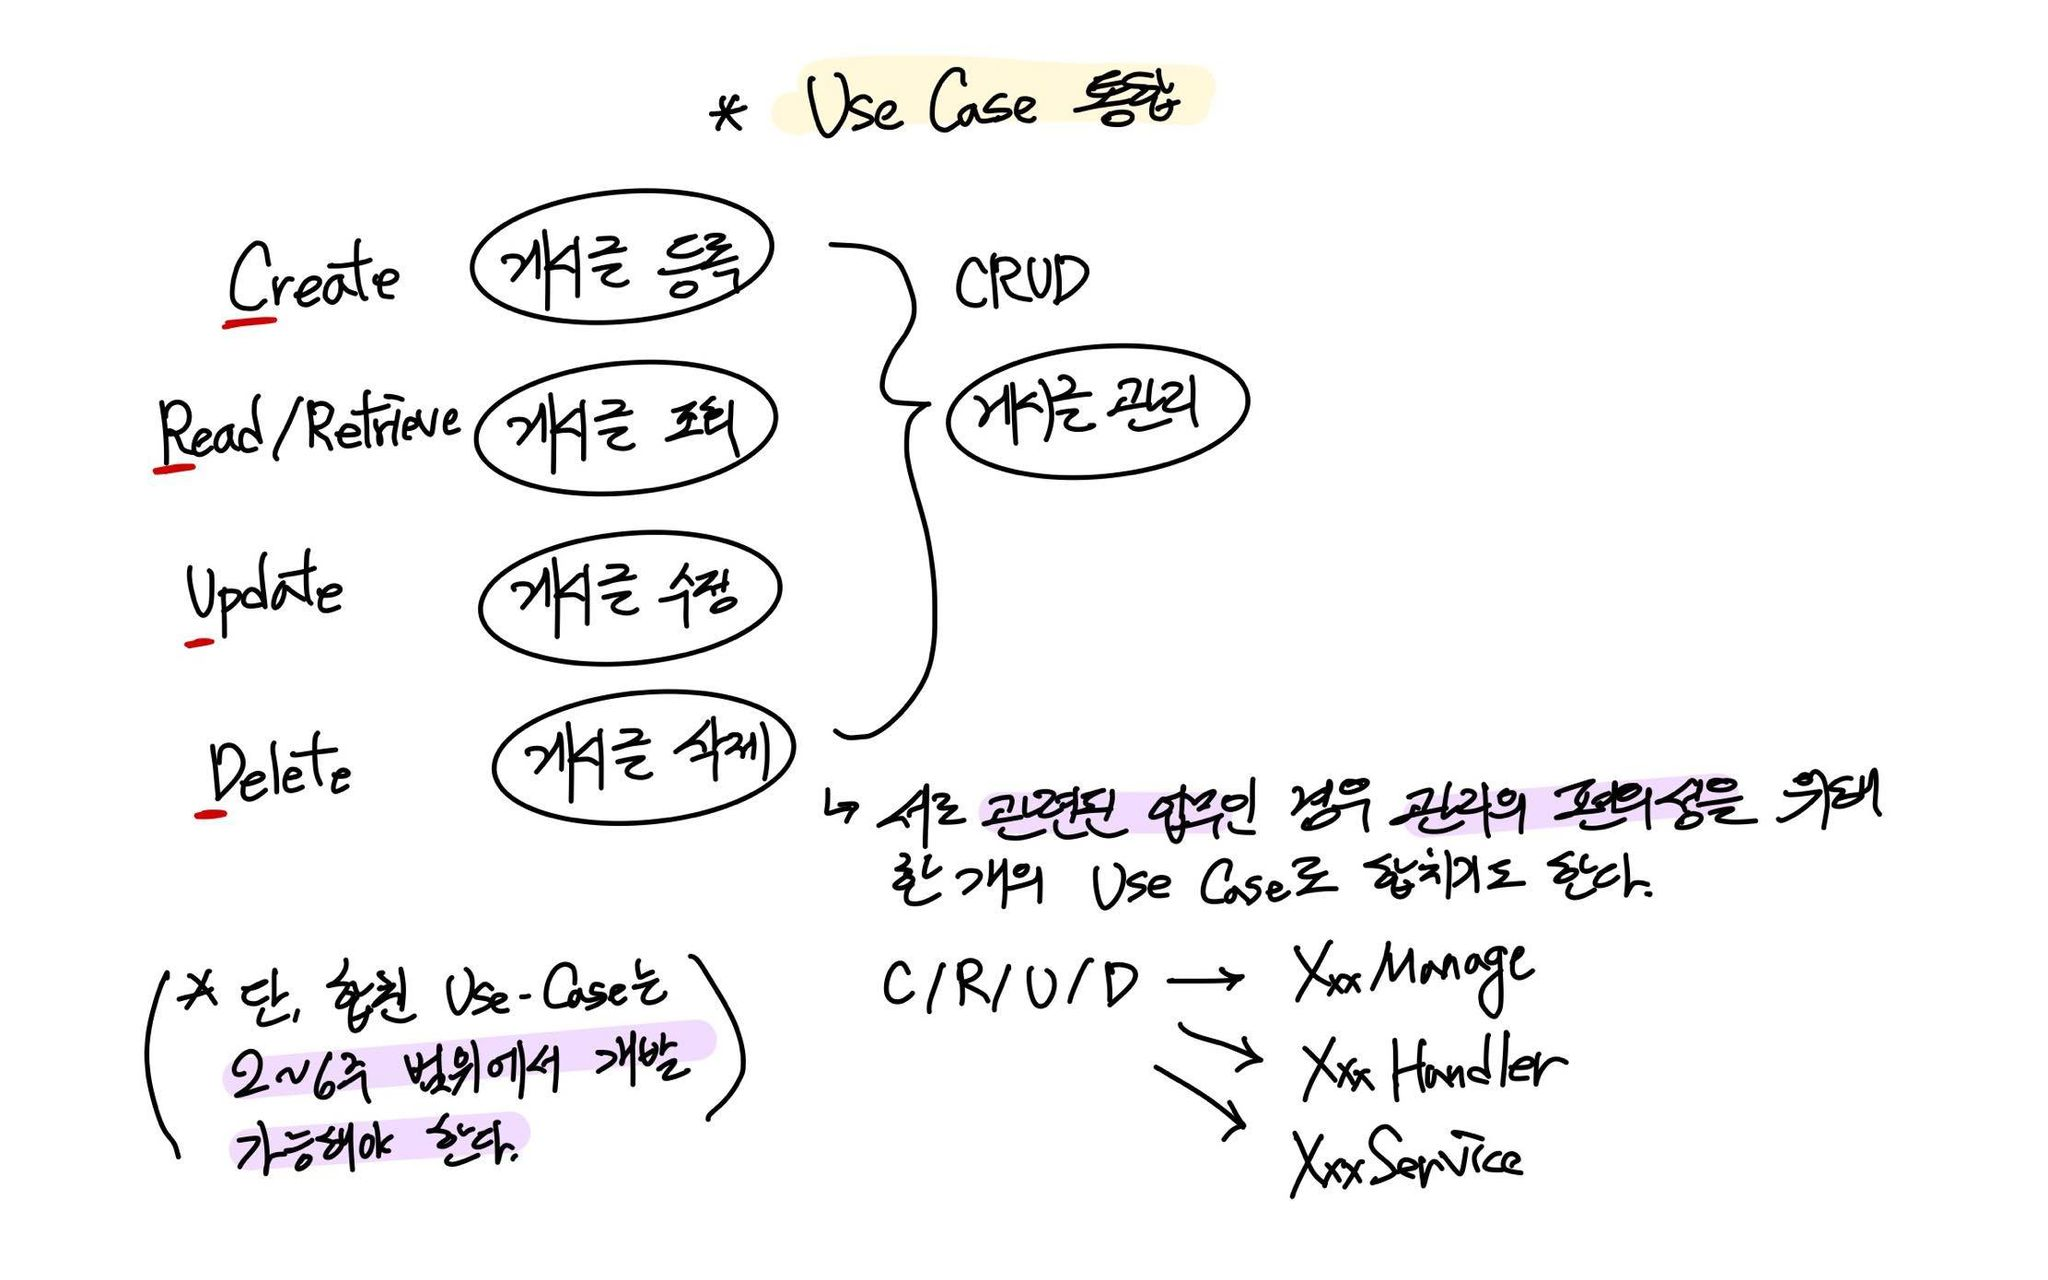 * Use Case 통합
Create 게시글 등록
CRUD
Read/Retrieve 게시글 조회
게시글 관리
Update 게시글 수정
Delete 게시글 삭제
↳ 서로 관련된 업무인 경우 관리의 편의성을 위해
한 개의 Use Case로 합치기도 한다.
(* 단, 합친 Use-Case는
2~6주 범위에서 개발
가능해야 한다.)
C/R/U/D → XxxManage
→ XxxHandler
→ XxxService